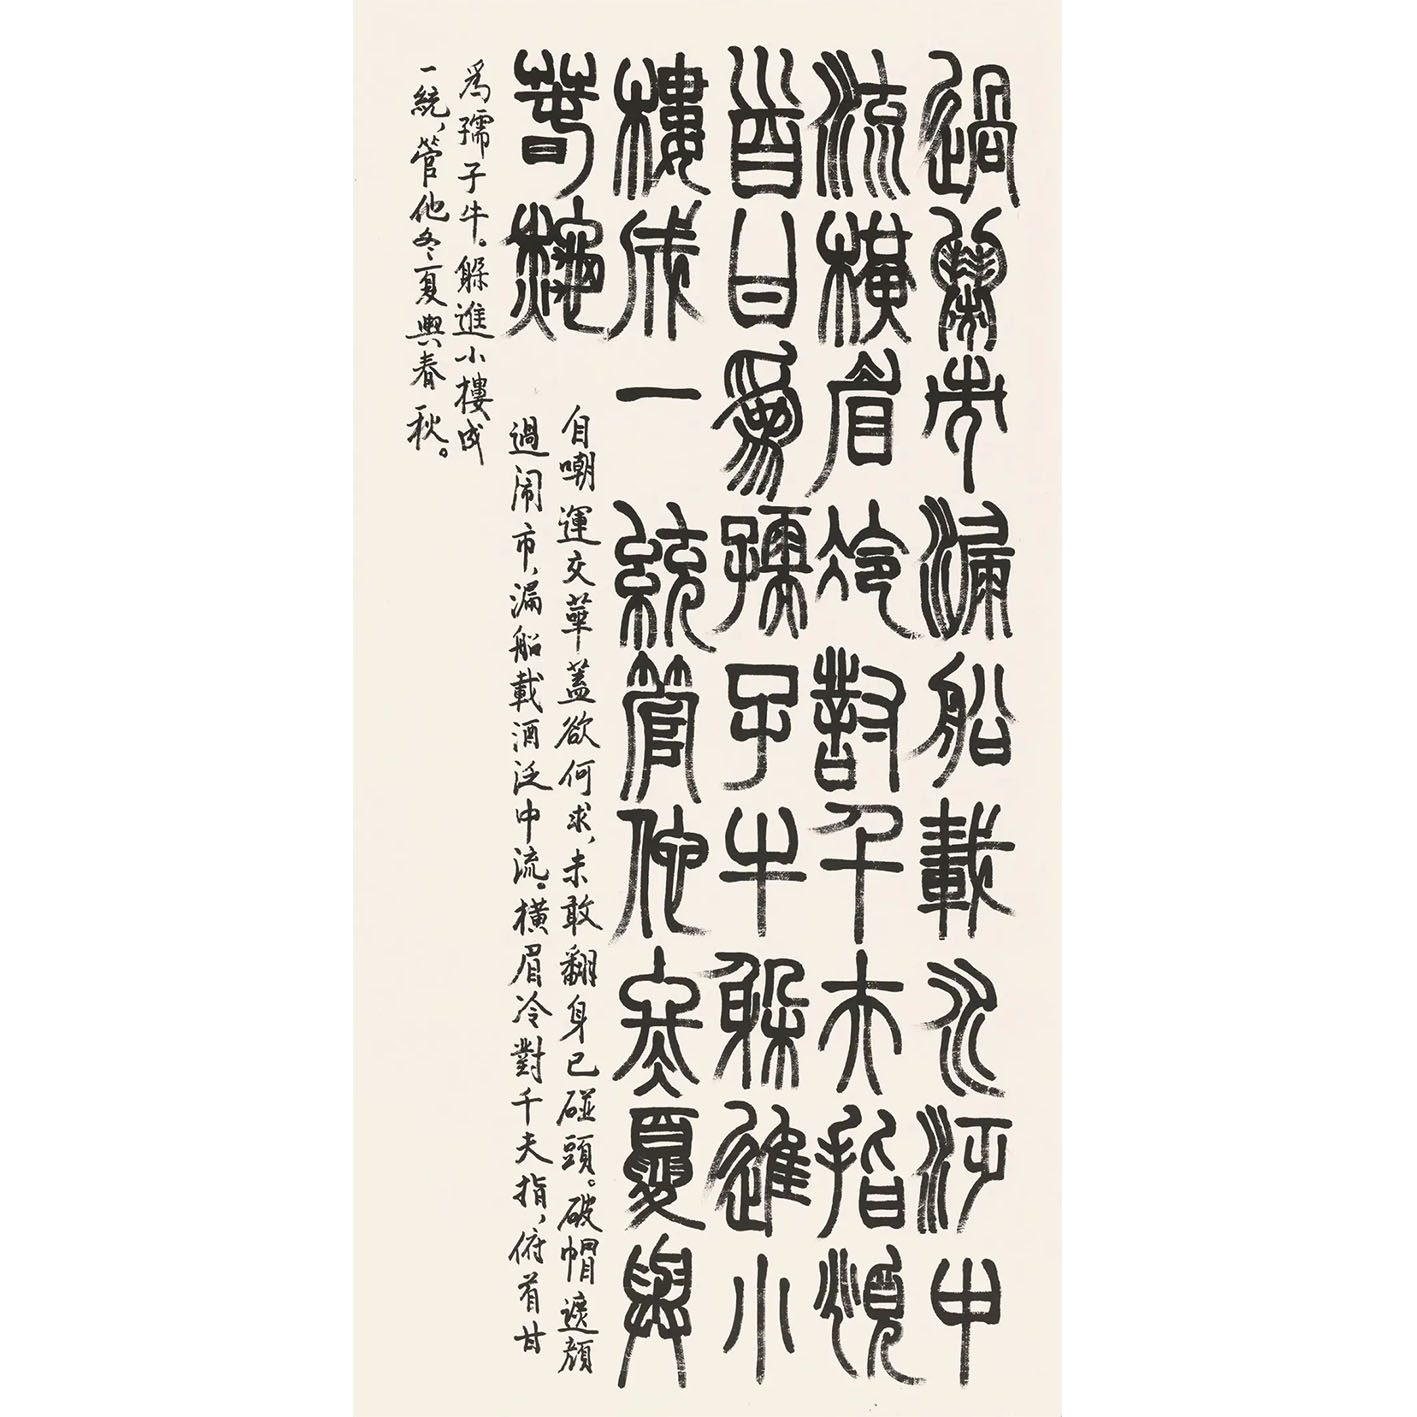 過鬧市漏船載酒泛中
流橫眉冷對千夫指俯
首甘為孺子牛躲進小
樓成一統管他冬夏與
春秋
自嘲運交華蓋欲何求、未敢翻身已碰頭。破帽遮顏
過闹市、漏船載酒泛中流。橫眉冷對千夫指、俯首甘
為孺子牛。躲進小樓成
一統、管他冬夏與春秋。